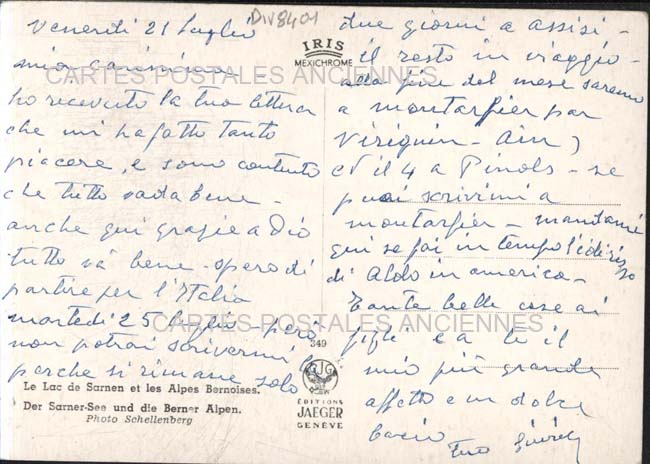 Venerdi 21 Luglio
mia carissima
ho ricevuto la tua lettera
che mi ha fatto tanto
piacere, e sono contento
che tutto vada bene -
anche qui grazie a Dio
tutto và bene - spero di
partire per l'Italia
martedi 25 luglio però
non potrai scrivermi
perche si rimane solo
Le Lac de Sarnen et les Alpes Bernoises.
Der Sarner-See und die Berner Alpen.
Photo Schellenberg
DIV8401
IRIS
MEXICHROME
349
GJG
EDITIONS
JAEGER
GENÈVE
due giorni a assisi -
il resto in viaggio -
alla fine del mese saremo
a montarfier par
Viriguin - Ain)
e il 4 a Pinols - se
puoi scrivimi a
montarfier - mandami
qui se fai in tempo l'
di Aldo in america -
tante belle cose ai
figli e a te il
mio più grande
affetto e un dolce
bacio
tuo
CARTES POSTALES ANCIENNES
CARTES POSTALES ANCIENNES